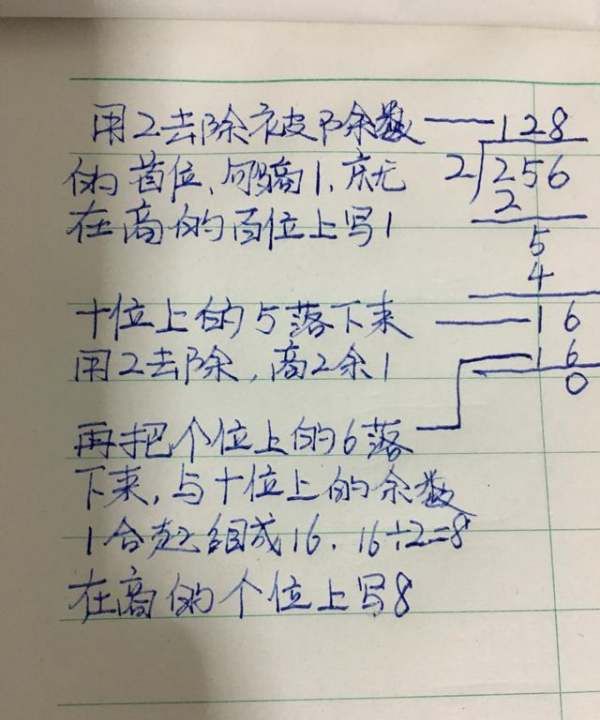 用2去除被除数
的首位,刚商1,就
在商的百位上写1
十位上的5落下来
用2去除,商2余1
再把个位上的6落
下来,与十位上的余数
1合起组成16.16÷2=8
在商的个位上写8
128
2)256
2
5
4
16
16
0